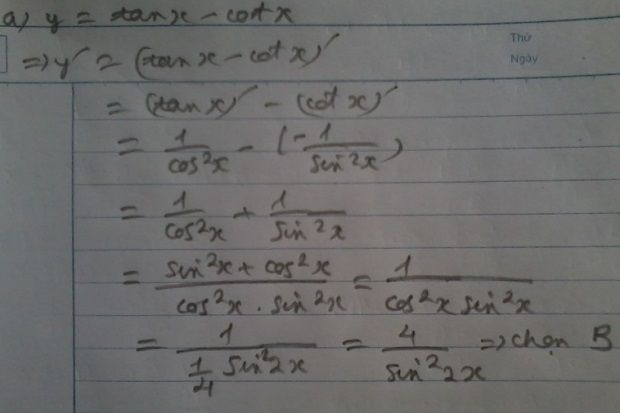 a) y = tan x - cot x
Thứ
⇒ y' = (tan x - cot x)'
Ngày
= (tan x)' - (cot x)'
= 1/cos²x - (-1/sin²x)
= 1/cos²x + 1/sin²x
= (sin²x + cos²x)/(cos²x . sin²x) = 1/(cos²x sin²x)
= 1/(1/4 sin²2x) = 4/sin²2x ⇒ chọn B